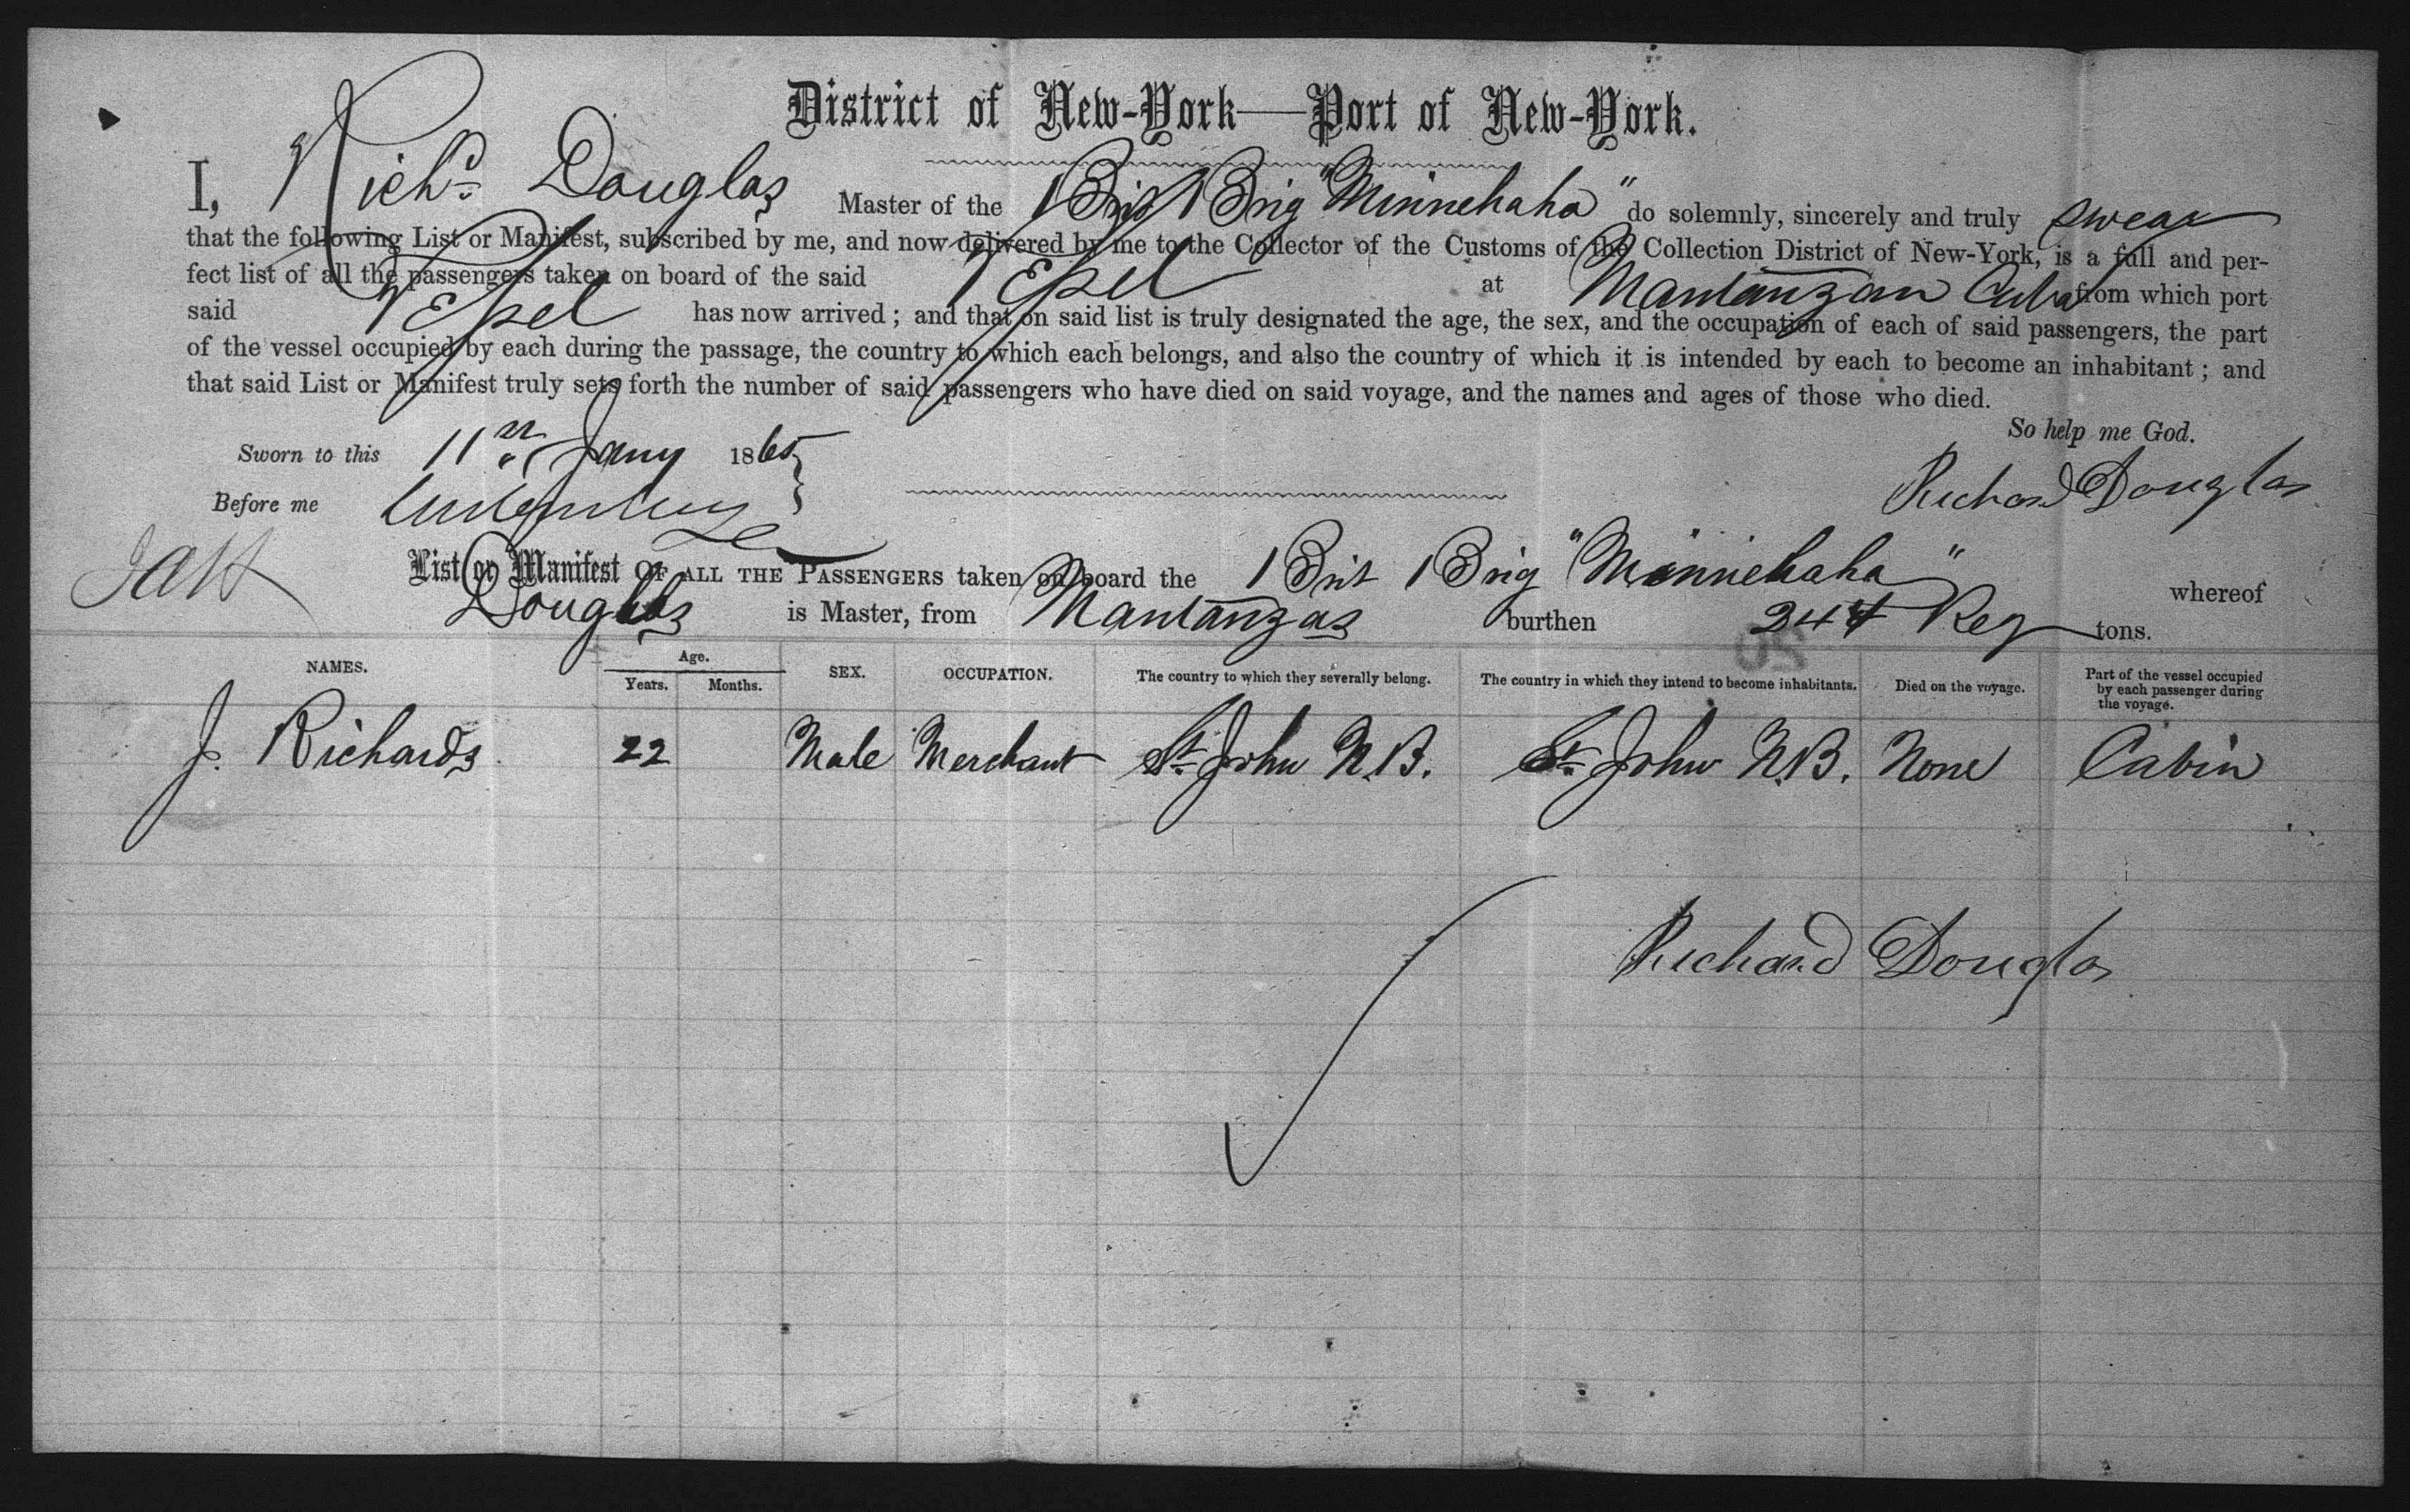 District of New-York—Port of New-York.
I, Richd Douglas Master of the Brit Brig "Minnehaha" do solemnly, sincerely and truly swear
that the following List or Manifest, subscribed by me, and now delivered by me to the Collector of the Customs of the Collection District of New-York, is a full and per-
fect list of all the passengers taken on board of the said Vessel at Mantanzas Cuba from which port
said Vessel has now arrived; and that on said list is truly designated the age, the sex, and the occupation of each of said passengers, the part
of the vessel occupied by each during the passage, the country to which each belongs, and also the country of which it is intended by each to become an inhabitant; and
that said List or Manifest truly sets forth the number of said passengers who have died on said voyage, and the names and ages of those who died.
So help me God.
Sworn to this 11th Jany 1865
Richard Douglas
Before me
List or Manifest OF ALL THE PASSENGERS taken on board the Brit Brig "Minnehaha" whereof
Douglas is Master, from Mantanzas burthen 244 Reg tons.
NAMES. Age. SEX. OCCUPATION. The country to which they severally belong. The country in which they intend to become inhabitants. Died on the voyage. Part of the vessel occupied by each passenger during the voyage.
Years. Months.
J. Richards 22 Male Merchant St. John N.B. St. John N.B. None Cabin
Richard Douglas